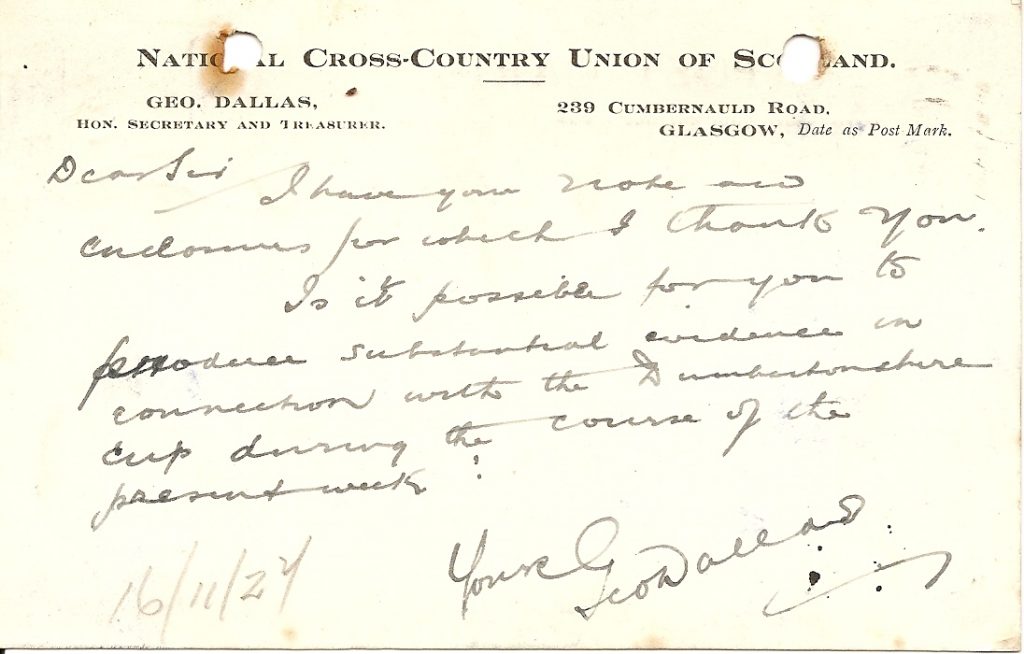 NATIONAL CROSS-COUNTRY UNION OF SCOTLAND.
GEO. DALLAS,
HON. SECRETARY AND TREASURER.
239 CUMBERNAULD ROAD,
GLASGOW, Date as Post Mark.
Dear Sir
I have your note and
enclosures for which I thank you.
Is it possible for you to
produce substantial evidence in
connection with the Dumbartonshire
cup during the course of the
present week?
Yours Geo Dallas
16/11/27